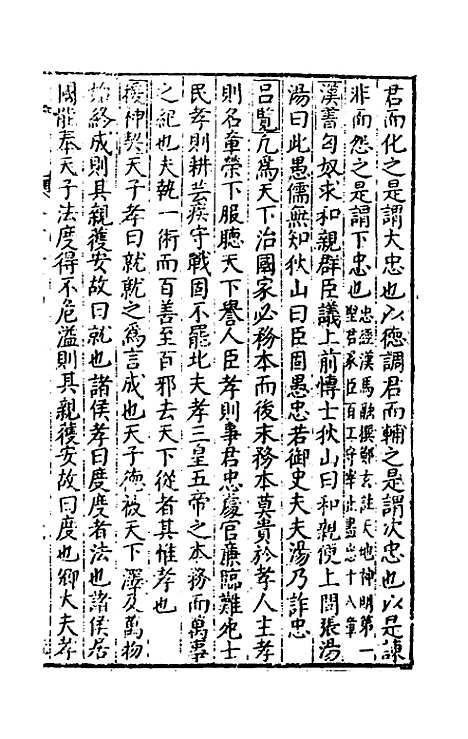 君而化之是謂大忠也以德調君而輔之是謂次忠也以是諫
非而怨之是謂下忠也忠經漢馬融撰鄭玄註天地神明第一
聖君冢臣百工守宰此盡忠十八章
漢書匈奴求和親群臣議上前博士狄山曰和親便上問張湯
湯曰此愚儒無知狄山曰臣固愚忠若御史大夫湯乃詐忠
呂覽凡為天下治國家必務本而後末務本莫貴於孝人主孝
則名章榮下服聽天下譽人臣孝則事君忠處官廉臨難死士
民孝則耕芸疾守戰固不罷北夫孝三皇五帝之本務而萬事
之紀也夫執一術而百善至百邪去天下從者其惟孝也
援神契天子孝曰就就之為言成也天子德被天下澤及萬物
始終成則其親獲安故曰就也諸侯孝曰度度者法也諸侯居
國能奉天子法度得不危溢則其親獲安故曰度也卿大夫孝